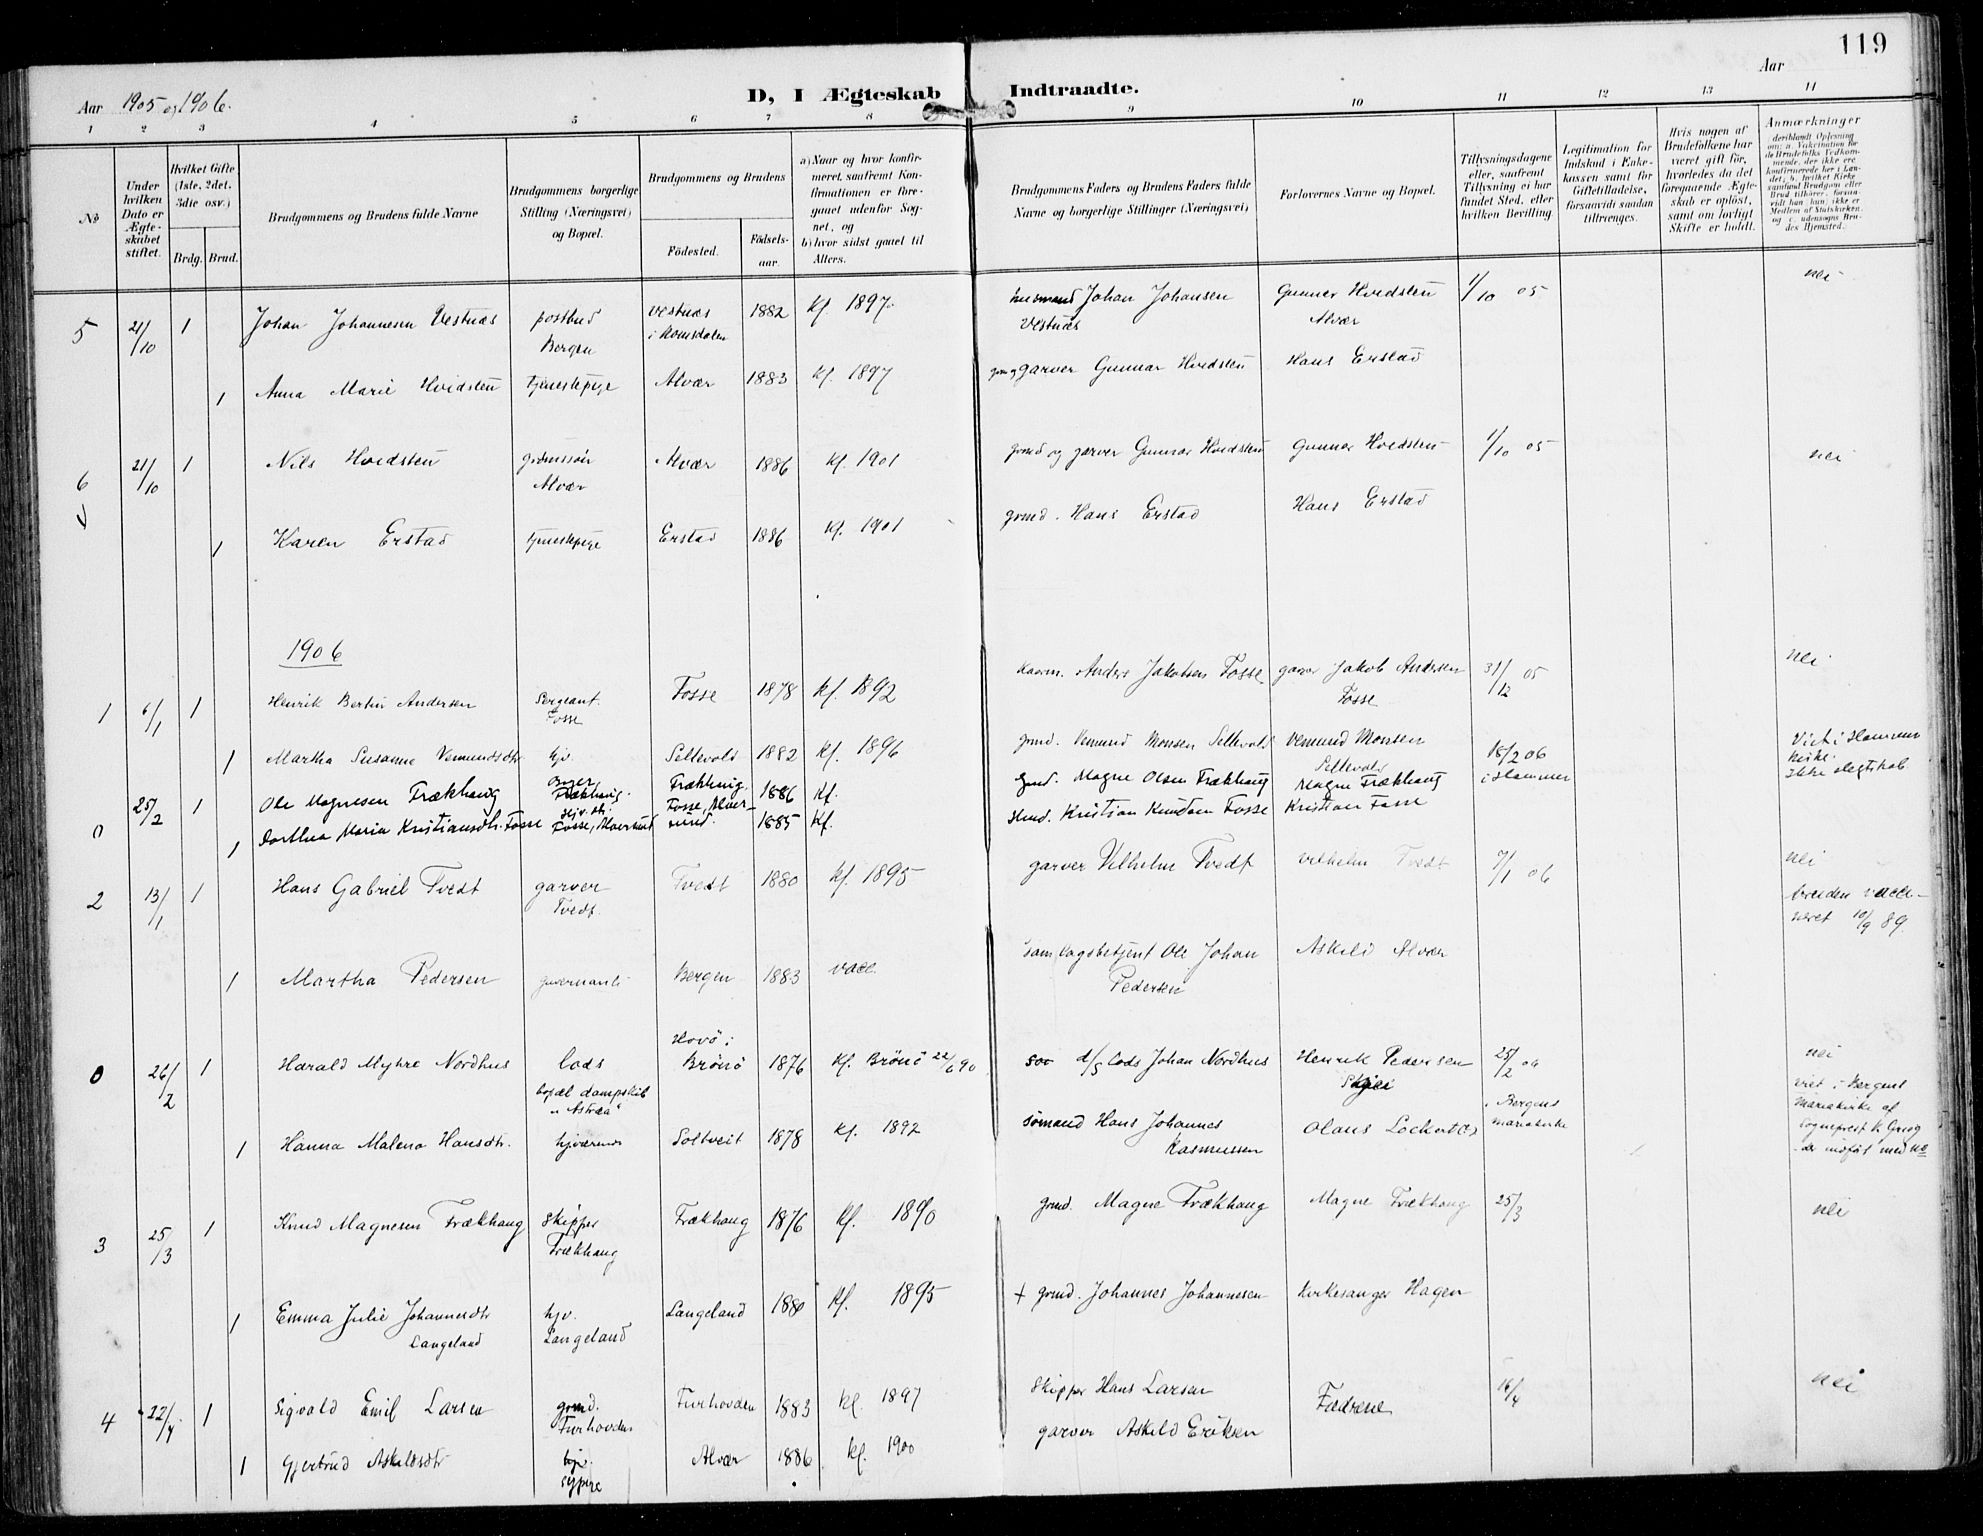 119
Aar 1905 og 1906.
D, I Ægteskab Indtraadte.
Aar
1 2 3 4 5 6 7 8 9 10 11 12 13 14
No
Under hvilken Dato er Ægteskabet stiftet.
Hvilket Gifte (1ste, 2det, 3die osv.)
Brdg. Brud.
Brudgommens og Brudens fulde Navne
Brudgommens borgerlige Stilling (Næringsvei) og Bopæl.
Brudgommens og Brudens
Fødested.
Fødselsaar.
a) Naar og hvor konfirmeret, saafremt Konfirmationen er foregaaet udenfor Sognet, og
b) hvor sidst gaaet til Alters.
Brudgommens Faders og Brudens Faders fulde Navne og borgerlige Stillinger (Næringsvei)
Forlovernes Navne og Bopæl.
Tillysningsdagene eller, saafremt Tillysning ei har fundet Sted, efter hvilken Bevilling
Legitimation for Indskud i Enkekassen samt for Giftetilladelse, forsaavidt saadan tiltrænges.
Hvis nogen af Brudefolkene har været gift før, hvorledes da det foregaaende Ægteskab er opløst, samt om lovligt Skifte er holdt.
Anmærkninger
5 21/10 1 Johan Johannesen Vestnæs postbud Bergen Vestnæs i Romsdalen 1882 Kf. 1897. husmand Johan Johansen Vestnæs Gunnar Hvidsten Alvær 1/10 05 nei
1 Anna Marie Hvidsten tjenestepige Alvær 1883 Kf. 1897 garver Gunnar Hvidsten Hans Erstad
6 21/10 1 Nils Hvidsten Alvær Alvær 1886 Kf. 1901 grmd og garver Gunnar Hvidsten Gunnar Hvidsten 1/10 05 nei
1 Karen Erstad tjenestepige Erstad 1886 Kf. 1901 grmd. Hans Erstad Hans Erstad
1906
1 6/1 1 Henrik Bertin Andersen Sergeant. Fosse Fosse 1878 Kf. 1892 Anders Jakobsen Fosse Jakob Andersen Fosse 31/12 05 nei
1 Martha Susanne Vemundsdtr hjv. Seltevold 1882 Kf. 1896 grmd. Vemund Monsen Vemund Monsen
0 25/2 1 Ole Magnesen Trækhaug Trækhaug. Trækhaug. 1886 Kf. Gmd. Magne Olsen Trækhaug Magne Trækhaug 18/2 06 i Hammer Viet i Hammer Kirke. Ikke slegtskab
1 Dorthea Maria Kristiansdtr. Fosse Fosse, Alversund Fosse, Alversund. 1885 Kf. Kristian Knudsen Fosse Kristian Fosse
2 13/1 1 Hans Gabriel Tvedt garver Tvedt. Tvedt 1880 Kf. 1895 garver Vilhelm Tvedt Vilhelm Tvedt 7/1 06 nei
bruden vaccineret 10/9 89.
1 Martha Pedersen guvernante Bergen 1883 vacc. samlagsbetjent Ole Johan Pedersen Askild Alvær
0 26/2 1 Harald Myhre Nordhus lods bopæl dampskib "Astræa" Hovø i Brønø 1876 Kf. Brønø 22/6 90 lods Johan Nordhus Henrik Pedersen 25/2 06 nei
1 Hanna Malena Hansdtr. Soltveit 1878 Kf. 1892 sømand Hans Johannes Rasmussen Olaus Lockertz i Bergens mariakirke viet i Bergens Mariakirke af sogneprest
3 25/3 1 Knud Magnesen Trækhaug Skipper Trækhaug Trækhaug 1876 Kf. 1890 grmd. Magne Trækhaug Magne Trækhaug 25/3 nei
1 Emma Julie Johannesdtr Langeland hjv. Langeland Langeland 1880 Kf. 1895 + grmd. Johannes Johannesen Kirkesanger Hagen
4 22/4 1 Sigvald Emil Larsen grmd. Furhovden Furhovden 1883 Kf. 1897 Skipper Hans Larsen Fædrene 16/4 nei
1 Gjertrud Askildsdtr hjv. sypige Alvær 1886 Kf. 1900 garver Askild Eriksen